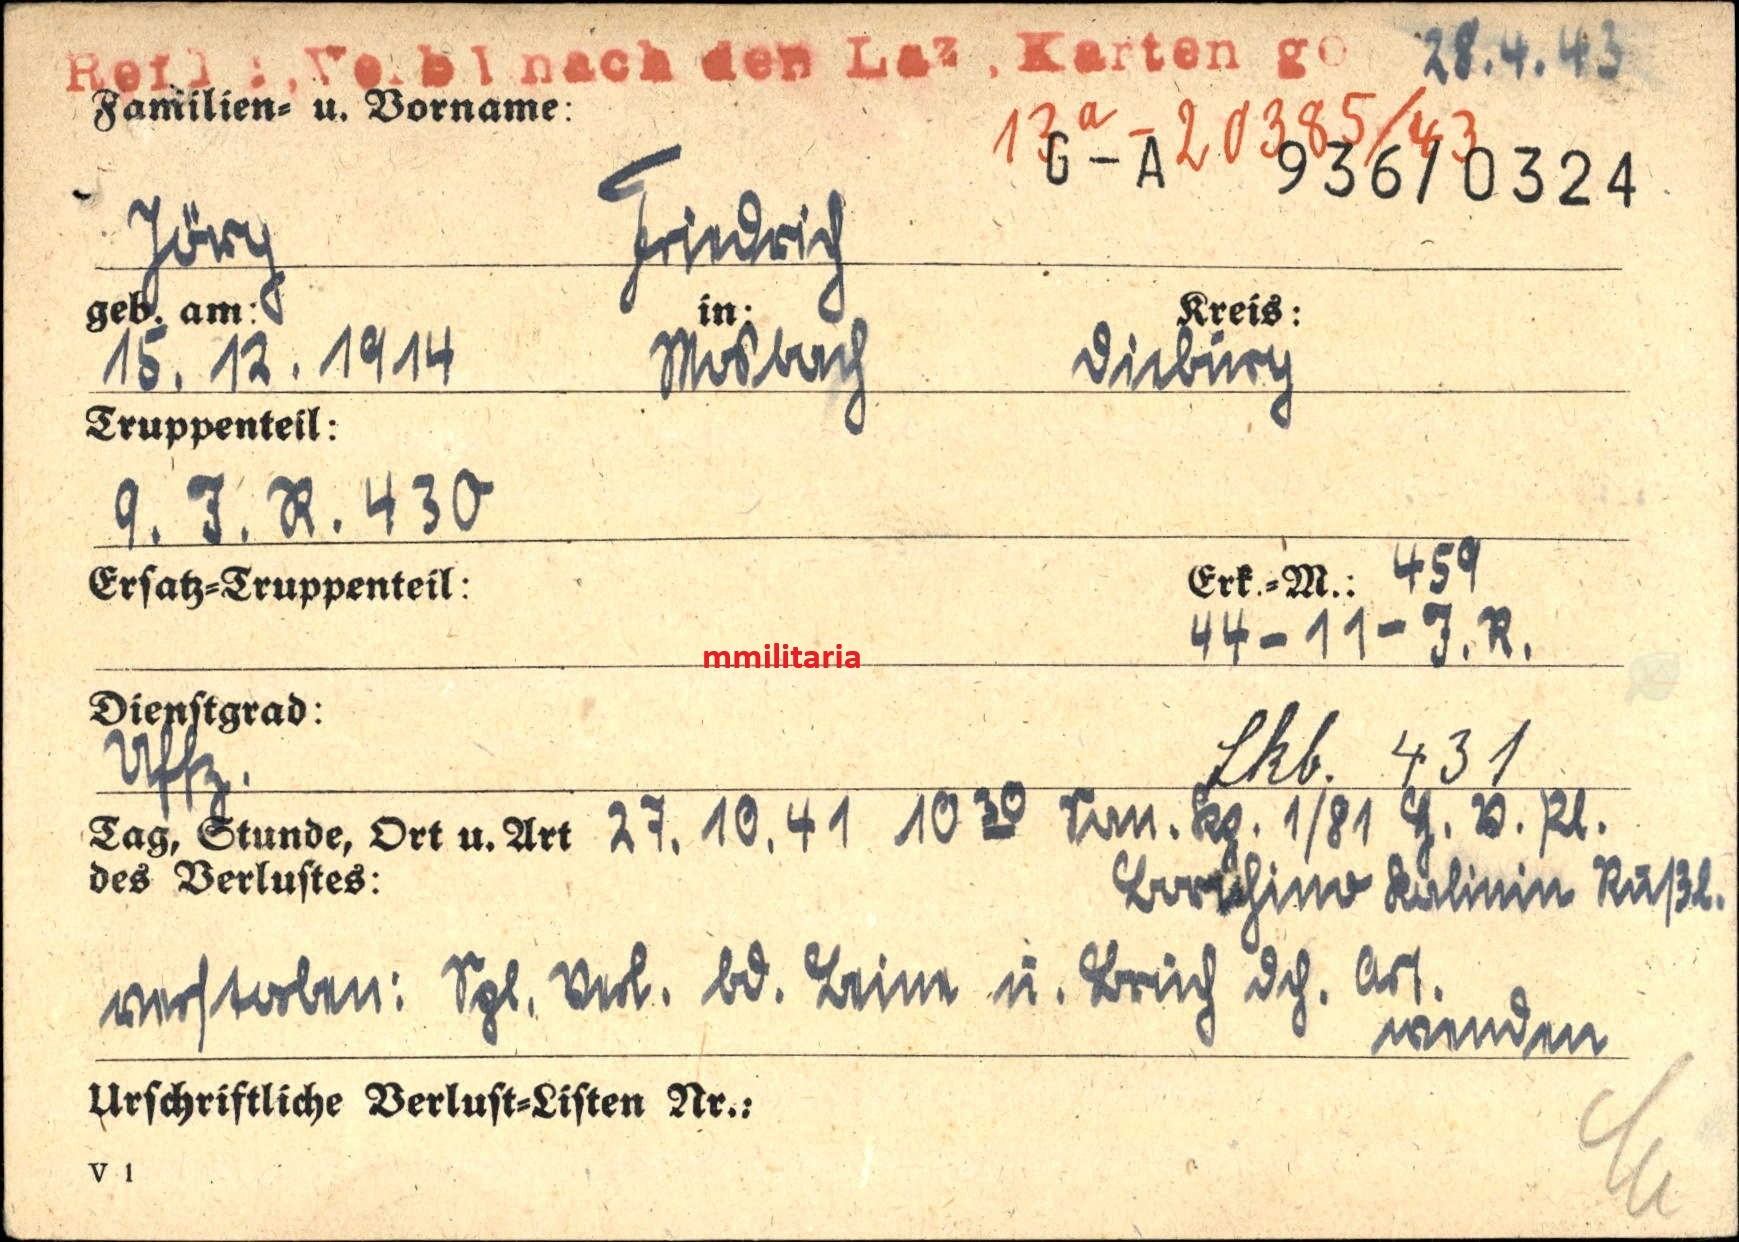 nach den Laz. Karten 28.4.43
Familien= u. Vorname:
13a - 20385/43
G-A 936/0324
Jörg Friedrich
geb. am: in: Kreis:
15. 12. 1914 Mosbach Dieburg
Truppenteil:
9. J. R. 430
Ersatz=Truppenteil: Erk.=M.: 459
44-11-J.R.
mmilitaria
Dienstgrad:
Uffz. Lkb. 431
Tag, Stunde, Ort u. Art 27. 10. 41 10 30 San. Kp. 1/81 H. V. Pl.
des Verlustes: Kalinin Rußl.
verstorben: Spl. Verl. bd. Beine u. Bruch dch. Art.
wenden
Urschriftliche Verlust=Listen Nr.:
V 1